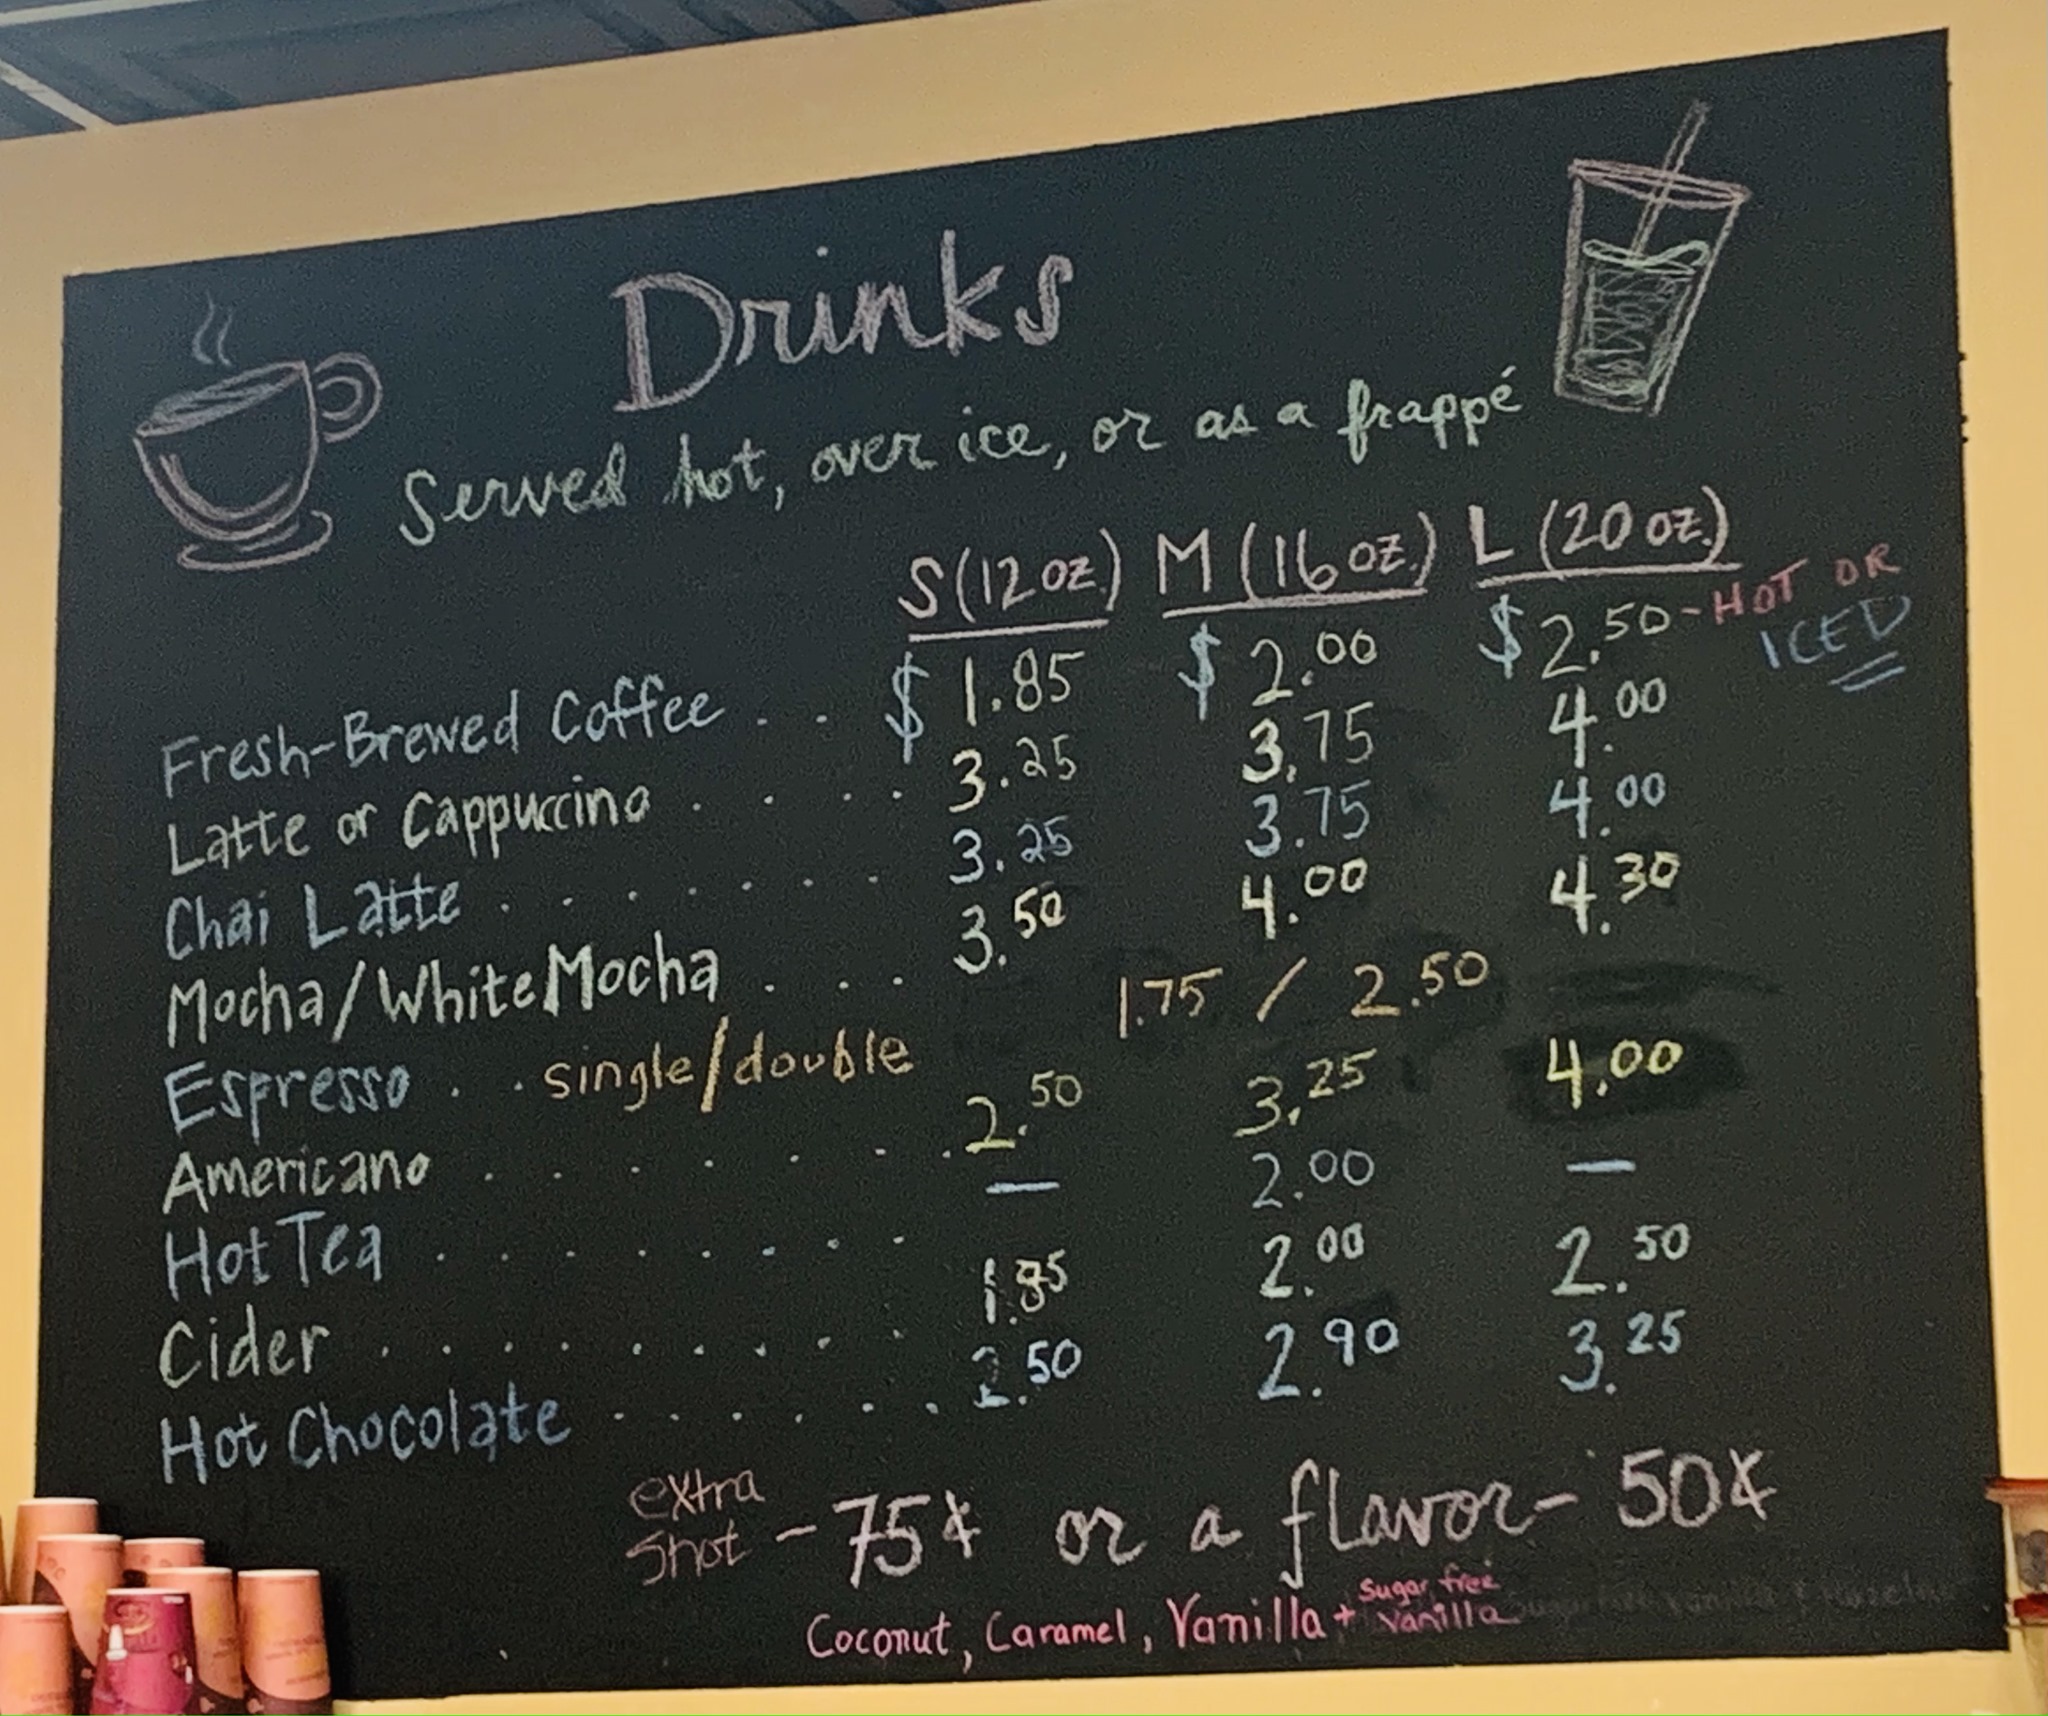 Drinks
Served hot, over ice, or as a frappé
S (12 oz.) M (16 oz.) L (20 oz.)
Fresh-Brewed Coffee . . $ 1.85 $ 2.00 $ 2.50 - HOT OR
ICED
Latte or Cappuccino . . . . 3.25 3.75 4.00
Chai Latte . . . . . . 3.25 3.75 4.00
Mocha/White Mocha . . . 3.50 4.00 4.30
Espresso . . single/double 1.75 / 2.50
Americano . . . . . . . 2.50 3.25 4.00
Hot Tea . . . . . . . . — 2.00 —
Cider . . . . . . . . . 1.85 2.00 2.50
Hot Chocolate . . . . . . 2.50 2.90 3.25
extra
shot - 75¢ or a flavor - 50¢
Coconut, Caramel, Vanilla + Sugar free
Vanilla